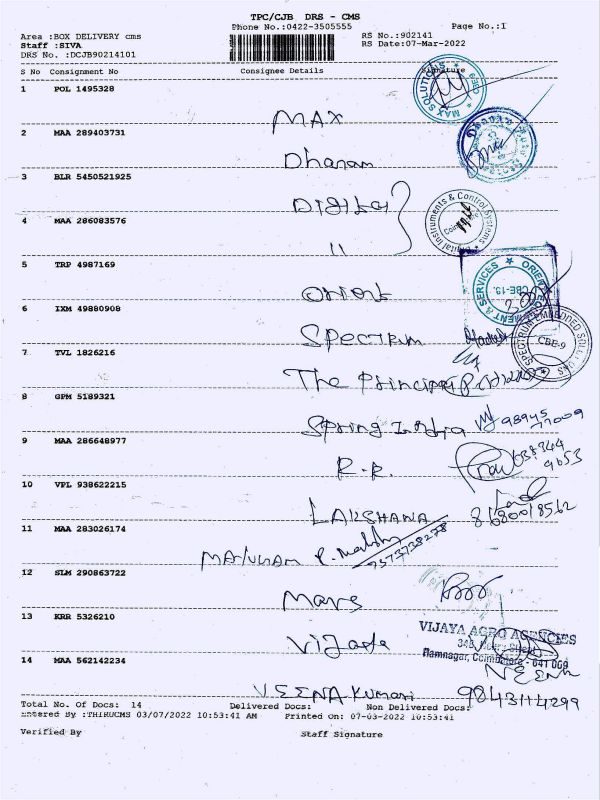 TPC/CJB DRS - CMS
Phone No.:0422-3505555
Page No.:I
Area :BOX DELIVERY cms
RS No.:902141
Staff :SIVA
RS Date:07-Mar-2022
DRS No. :DCJB90214101
S No Consignment No Consignee Details Signature
1 POL 1495328
MAX
MAX SOLUTIONS
2 MAA 289403731
Dharam
3 BLR 5450521925
4 MAA 286083576
"
Digital Instruments & Control Systems
5 TRP 4987169
orient
ORIENT EQUIPMENT & SERVICES
CBE-19.
6 IXM 49880908
Spectrum
SPECTRUM EMBEDDED SOLUTIONS
CBE-9
7 TVL 1826216
The Principal
8 GPM 5189321
Spring India
98945
77009
9 MAA 286648977
R.R.
9653
10 VPL 938622215
LAKSHANA
8680018562
11 MAA 283026174
7373738278
12 SLM 290863722
Mars
13 KRR 5326210
Vijaya
VIJAYA AGRO AGENCIES
Ramnagar, Coimbatore - 641 009
14 MAA 562142234
VEENA Kumari
VEENA
9843114299
Total No. Of Docs: 14 Delivered Docs: Non Delivered Docs:
Entered By :THIRUCMS 03/07/2022 10:53:41 AM Printed On: 07-03-2022 10:53:41
Verified By Staff Signature